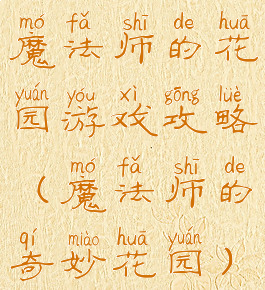 mó fǎ shī de huā
魔法师的花
yuán yóu xì gōng lüè
园游戏攻略
mó fǎ shī de
（魔法师的
qí miào huā yuán
奇妙花园）